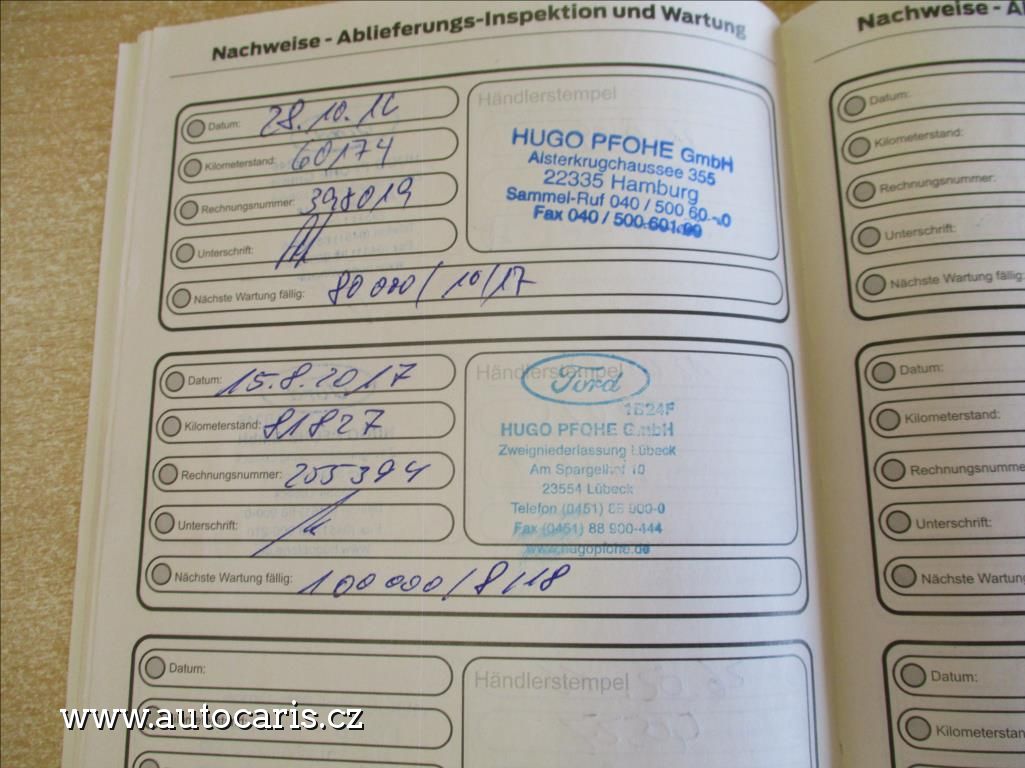 Nachweise - Ablieferungs-Inspektion und Wartung
Datum: 28.10.16
Kilometerstand: 60174
Rechnungsnummer: 398019
Unterschrift:
Nächste Wartung fällig: 80 000 / 10/17
Händlerstempel
HUGO PFOHE GmbH
Alsterkrugchaussee 355
22335 Hamburg
Sammel-Ruf 040 / 500 60-0
Fax 040 / 500.601.99
Datum: 15.8.2017
Kilometerstand: 81827
Rechnungsnummer: 255394
Unterschrift:
Nächste Wartung fällig: 100 000 / 8/18
Händlerstempel
Ford
1B24F
HUGO PFOHE GmbH
Zweigniederlassung Lübeck
Am Spargelhof 10
23554 Lübeck
Telefon (0451) 88 900-0
Fax (0451) 88 900-444
www.hugopfohe.de
Datum:
Händlerstempel
Nachweise - A
Datum:
Kilometerstand:
Rechnungsnummer:
Unterschrift:
Nächste Wartung fäl
Datum:
Kilometerstand:
Rechnungsnumme
Unterschrift:
Nächste Wartung
Datum:
Kilometerstan
www.autocaris.cz